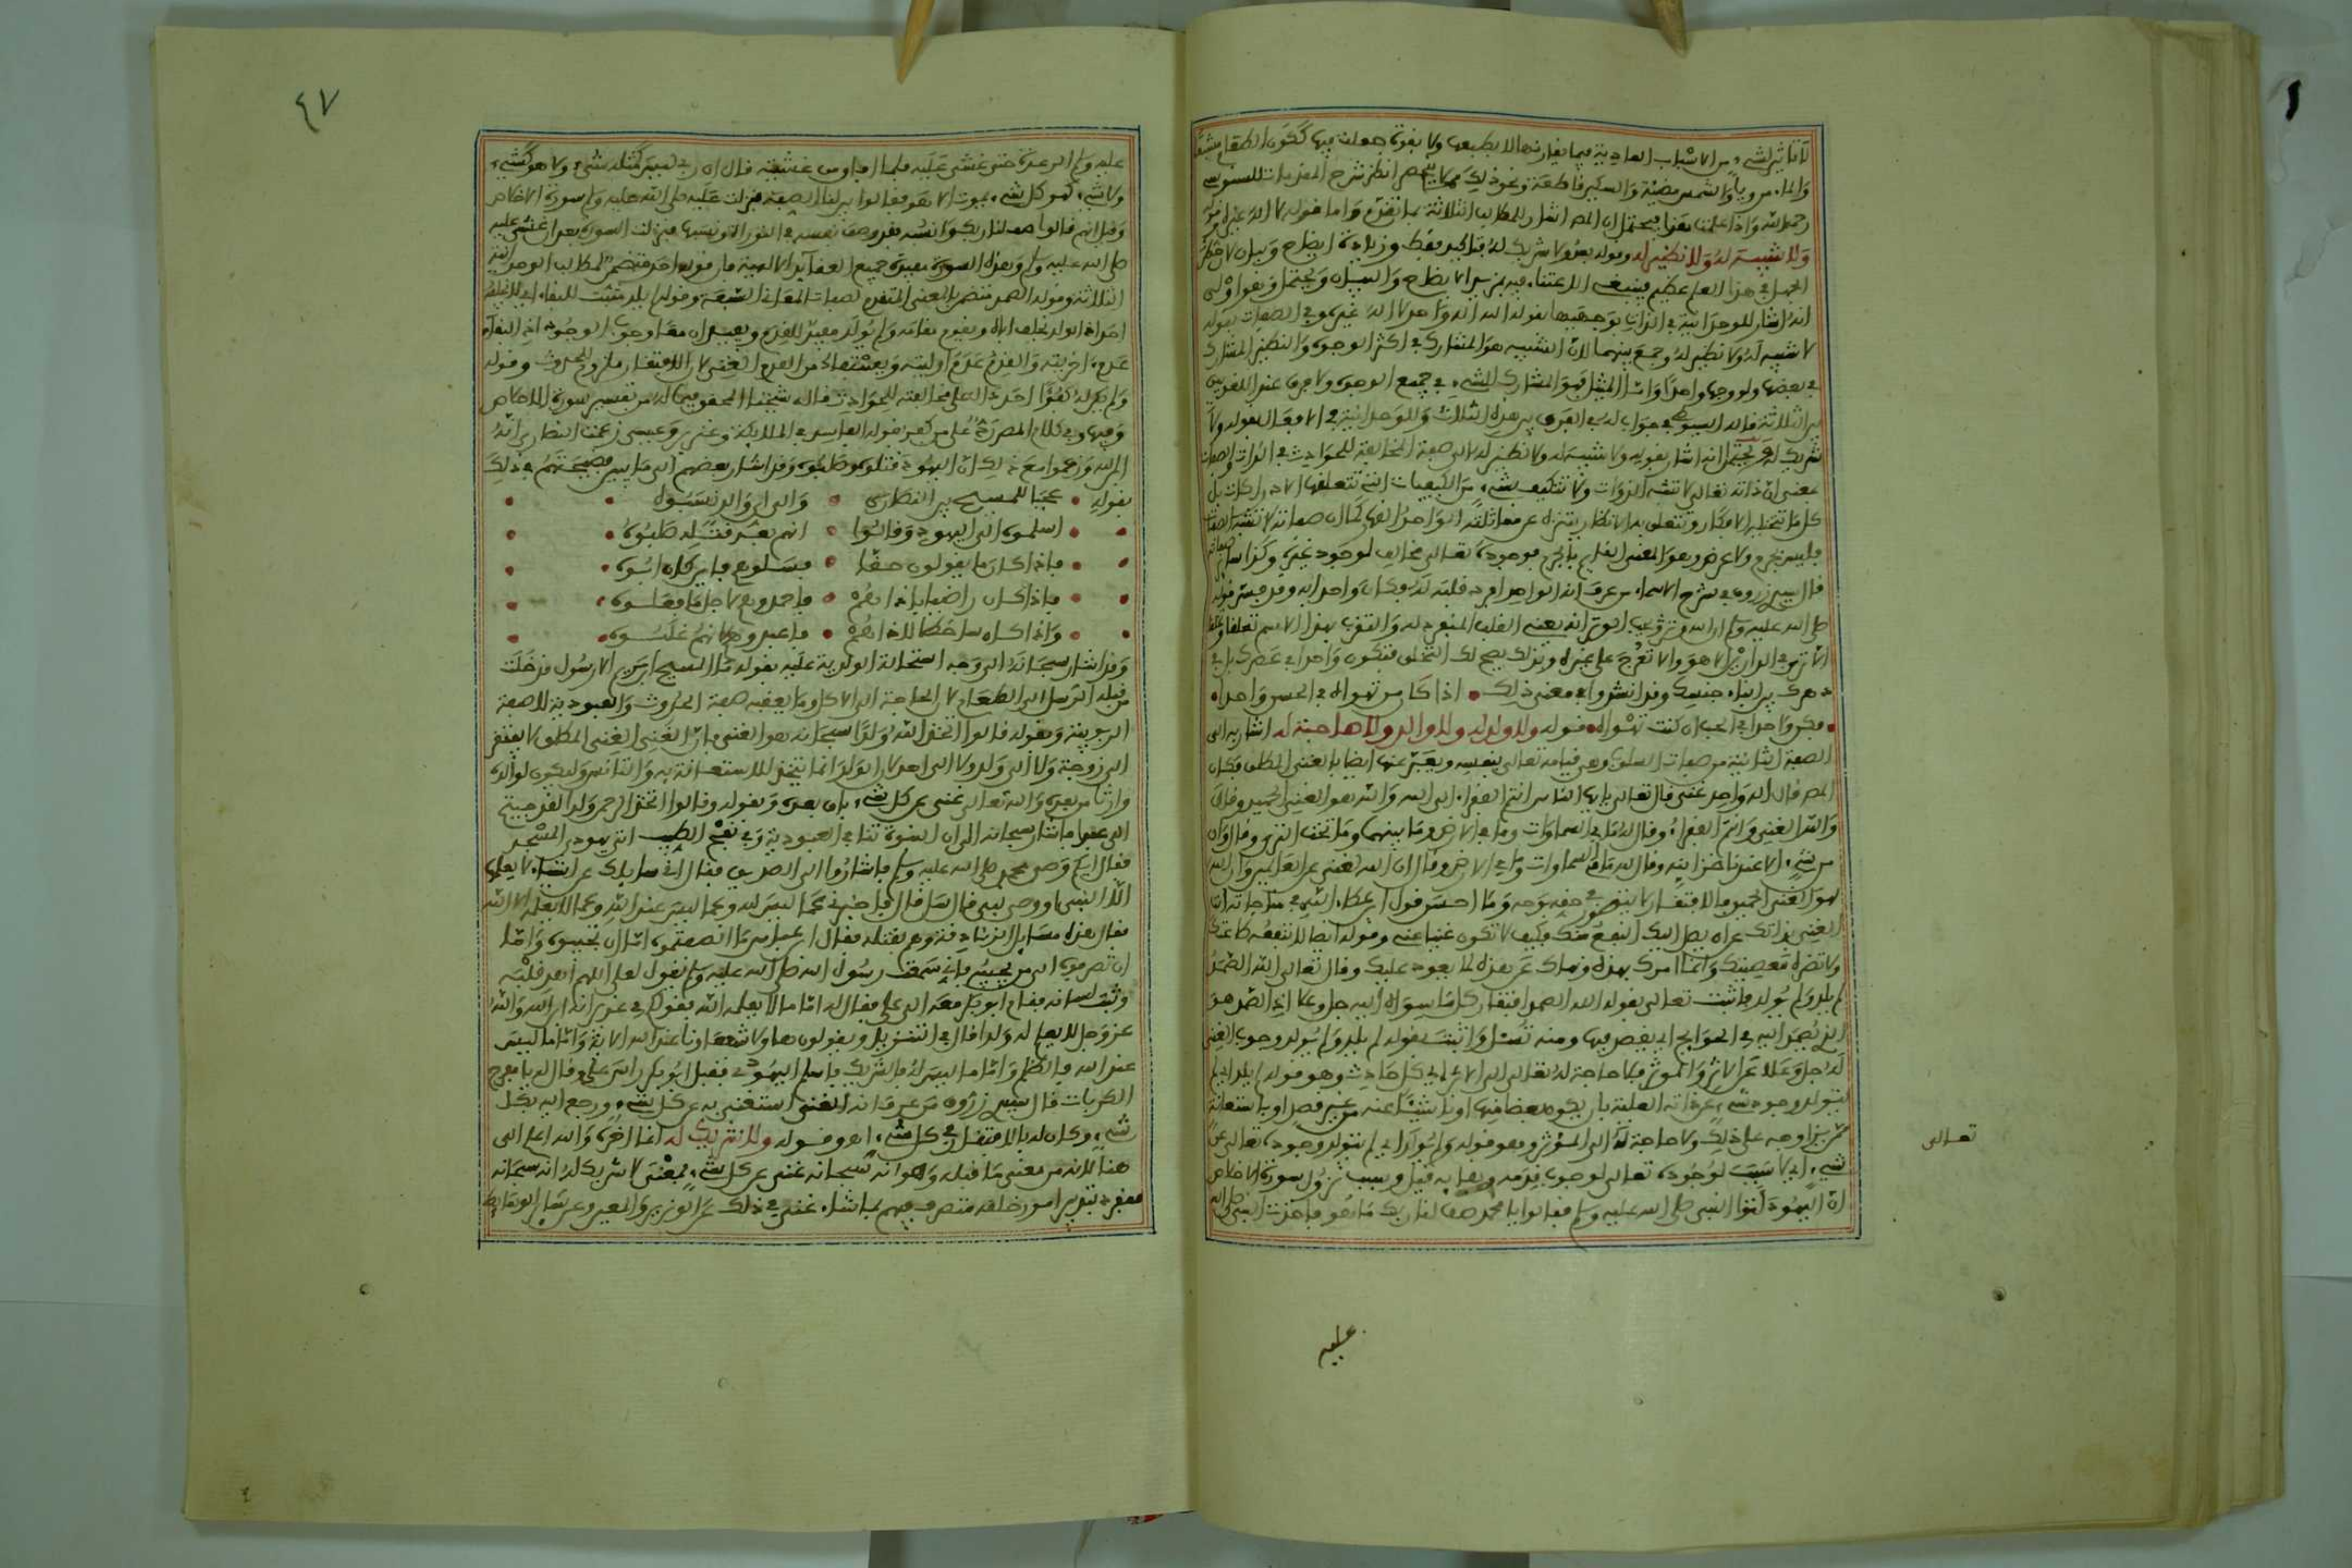 لا تاثير لشيء من الاسباب العادية فيما يقارنها لا بطبعها ولا بقوة جعلت فيها ككون الطعام مشبعا
والماء مرويا والشمس مضيئة والسكين قاطعة ونحو ذلك مما لا ينحصر انظر شرح المقدمات للسنوسي
رحمه الله واذا علمت هذا فيحتمل ان المص اشار للمطالب الثلاثة بما تقدم واما قوله لا اله غيره
ولا شبيه له ولا نظير له وقوله بعد ولا شريك له فتاكيد فقط وزيادة ايضاح وبيان لان خطر
الجهل في هذا العلم عظيم فينبغي الاعتناء فيه بمزيد الايضاح والبيان ويحتمل وهو اولى
انه اشار للوحدانية في الذات بوجهيها بقوله الله اله واحد لا اله غيره وفي الصفات بقوله
لا شبيه له ولا نظير له وجمع بينهما لان الشبيه هو المشارك في اكثر الوجوه والنظير المشارك
في بعضها ولو وجها واحدا واما المثل فهو المشارك للشيء في جميع الوجوه ولا فرق عند اللغويين
بين الثلاثة قاله السيوطي في جواب له في الفرق بين هذه الثلاث وللوحدانية في الافعال بقوله ولا
شريك له ويحتمل انه اشار بقوله ولا شبيه له ولا نظير له الى صفة المخالفة للحوادث في الذات والصفات
بمعنى ان ذاته تعالى لا تشبه الذوات ولا تتكيف بشيء من الكيفيات التي تتعلق الادراكات بل
كل ما تتخيله الافكار وتتعلق به الانظار يتنزه عن مماثلته الواحد القهار كما ان صفاته لا تشبه الصفات
فليس بجرم ولا عرض وهو المعنى القايم بالجرم فوجوده تعالى مخالف لوجود غيره وكذا سائر صفاته
قال سيدي زروق في شرح الاسماء من عرف انه الواحد افرد قلبه له فكان واحدا به وقد فسر قوله
صلى الله عليه وسلم ان الله وتر يحب الوتر انه يعني القلب المنفرد له والتقرب بهذا الاسم تعلقا وتخلقا
ان لا ترى في الدارين الا هو والا تعرج على غيره وبذلك يصح لك التخلق فتكون واحدا في عصرك بل في
دهرك بين ابناء جنسك وقد انشدوا في معنى ذلك اذا كان من تهواه في الحسن واحدا
فكن واحدا في الحب ان كنت تهواه قوله ولا ولد له ولا والد ولا صاحبة له اشار به الى
الصفة الثانية من صفات السلوب وهي قيامه تعالى بنفسه ويعبر عنها ايضا بالغنى المطلق فكان
المص قال اله واحد غني قال تعالى يايها الناس انتم الفقراء الى الله والله هو الغني الحميد وقال
والله الغني وانتم الفقراء وقال له ما في السماوات وما في الارض وما بينهما وما تحت الثرى وقال وان
من شيء الا عندنا خزاينه وقال لله ما في السماوات وما في الارض وقال ان الله لغني عن العالمين وان الله
لهو الغني الحميد فالافتقار لا يتصور في حقه بوجه وما احسن قول ابن عطاء الله في مناجاته انت
الغني بذاتك عن ان يصل اليك النفع منك فكيف لا تكون غنيا عني وقوله ايضا لا تنفعه طاعتك
ولا تضره معصيتك وانما امرك بهذه ونهاك عن هذه لما يعود عليك وقال تعالى الله الصمد
لم يلد ولم يولد فاثبت تعالى بقوله الله الصمد افتقار كل ما سواه اليه جل وعلا اذ الصمد هو
الذي يصمد اليه في الحوائج اي يقصد فيها ومنه تسئل واثبت بقوله لم يلد ولم يولد وجوب الغنى
له جل وعلا عن الاثر والموثر فلا حاجة له تعالى الى الاثر اي كل حادث وهو قوله لم يلد اي لم
يتولد وجود شيء عن ذاته العلية بان يكون بعضا منها او ناشئا عنه من غير قصد او باستعانة
ممن يزاوجه على ذلك ولا حاجة له الى الموثر وهو قوله ولم يولد اي لم يتولد وجوده تعالى عن
شيء اي لا سبب لوجوده تعالى لوجوب قدمه وبقايه قيل وسبب نزول سورة الاخلاص
ان اليهود اتوا النبي صلى الله عليه وسلم فقالوا يا محمد صف لنا ربك ما هو فاخذت النبي صلى الله
تعالى
عليه
٤٧
عليه وسلم الرعدة حتى غشي عليه فلما افاق من غشيته قال ان ربي ليس كمثله شيء ولا هو كشيء
ولا شيء كهو كل شيء يموت الا هو فقالوا بين لنا الصفة فنزلت عليه صلى الله عليه وسلم سورة الاخلاص
وقيل انهم قالوا صف لنا ربك وانسبه فقد وصف نفسه في التوراة ونسبها فنزلت السورة بعد ان غشي عليه
صلى الله عليه وسلم وهذه السورة مفيدة جميع العقائد الالهية فان قوله احد متضمن لمطالب الوحدانية
الثلاثة وقوله الصمد متضمن بالمعنى المتقدم لصفات المعاني السبعة وقوله لم يلد مثبت للبقاء اي لا يخلفه
احد اذ الولد يخلف اباه ويقوم مقامه ولم يولد مفيد للقدم ويفسران معا وجوب الوجود اذ البقاء
عدم اخريته والقدم عدم اوليته ويستفاد من القدم الغنى لان الافتقار ملزوم للحدوث وقوله
ولم يكن له كفؤا احد دال على مخالفته للحوادث قاله شيخنا المحقق فيما له من تفسير سورة الاخلاص
وفيها وفي كلام المص رد على من كفر بقوله الفاسد في الملائكة وعزير وعيسى زعمت النصارى انه
ابن الله وزعموا مع ذلك ان اليهود قتلوه وصلبوه وقد اشار بعضهم الى ما يبين فضيحتهم في ذلك
بقوله عجبا للمسيح بين النصارى والى اي والد نسبوه
اسلموه الى اليهود وقالوا انهم بعد قتله صلبوه
فاذا كان ما يقولون حقا فسلوهم فاين كان ابوه
فاذا كان راضيا باذاهم فاحمدوهم لاجل ما فعلوه
واذا كان ساخطا لاذاهم فاعبدوهم لانهم غلبوه
وقد اشار سبحانه الى وجه استحالة الولدية عليه بقوله ما المسيح ابن مريم الا رسول قد خلت
من قبله الرسل الى الطعام لان الحاجة الى الاكل وما يعقبه صفة الحدوث والعبودية لا صفة
الربوبية وبقوله قالوا اتخذ الله ولدا سبحانه هو الغني فان الغني الغنى المطلق لا يفتقر
الى زوجة ولا الى ولد ولا الى احد لان الولد انما يتخذ للاستعانة به والتانس وليكون لوالده
وارثا من بعده والله تعالى غني عن كل شيء باق بعده وبقوله وقالوا اتخذ الرحمن ولدا لقد جيتم
الى عبدا فاشار سبحانه الى ان البنوة تنافي العبودية وفي نفح الطيب اتى يهودي المسجد
فقال ايكم وصي محمد صلى الله عليه وسلم فاشاروا الى الصديق فقال اني سايلك عن اشياء لا يعلمها
الا نبي او وصي نبي قال سل قال فاخبرني عما ليس لله وعما ليس عند الله وعما لا يعلمه الله
فقال هذه مسايل الزنادقة وهم بقتله فقال ابن عباس ما انصفتموه اما ان تجيبوه واما
ان تصرفوه الى من يجيبه فاني سمعت رسول الله صلى الله عليه وسلم يقول لعلي اللهم اهد قلبه
وثبت لسانه فقام ابو بكر معه الى علي فقال له اما ما لا يعلمه الله فقولكم في عزير انه ابن الله والله
عز وجل لا يعلم له ولدا قال في التنزيل ويقولون هاولاء شفعاونا عند الله الاية واما ما ليس
عند الله فالظلم واما ما ليس له فالشريك فاسلم اليهودي فقبل ابو بكر راس علي وقال له يا مفرج
الكربات قال سيدي زروق من عرف انه الغني استغنى به عن كل شيء ورجع اليه بكل
شيء وكان له بالافتقار في كل شيء اهـ وقوله ولا شريك له انما اخره والله اعلم الى
هنا لانه من معنى ما قبله وهو انه سبحانه غني عن كل شيء فمعنى لا شريك له انه سبحانه
منفرد بتدبير امور خلقه متصرف فيهم بما شاء غني في ذلك عن الوزير والمعين وعن ساير الوسايط